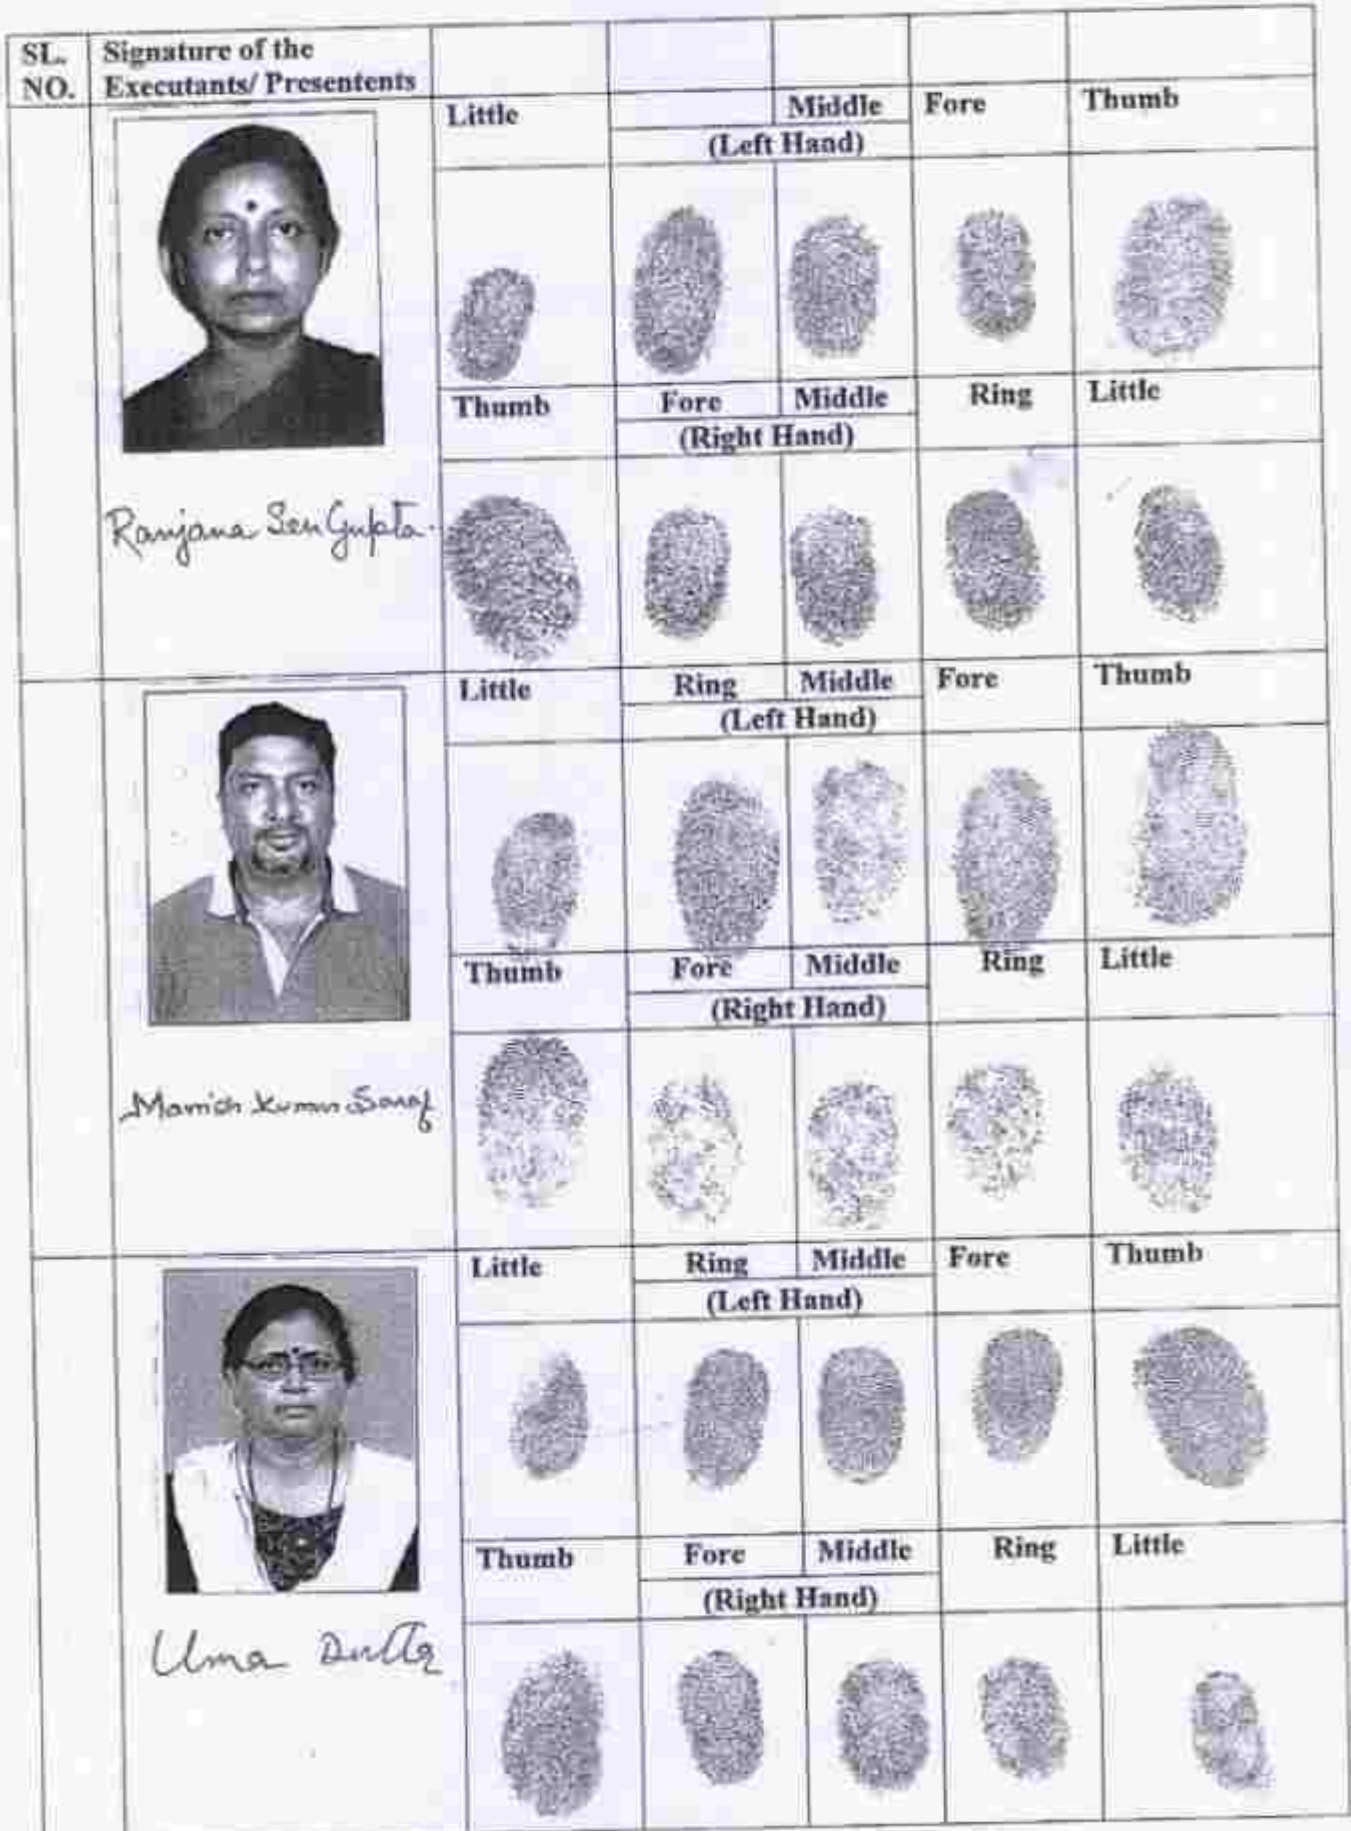 SL. NO.
Signature of the Executants/ Presentents
Little
Middle
Fore
Thumb
(Left Hand)
Thumb
Fore
Middle
Ring
Little
(Right Hand)
Ranjana Sen Gupta
Little
Ring
Middle
Fore
Thumb
(Left Hand)
Thumb
Fore
Middle
Ring
Little
(Right Hand)
Manish Kumar Saraf
Little
Ring
Middle
Fore
Thumb
(Left Hand)
Thumb
Fore
Middle
Ring
Little
(Right Hand)
Uma Dutta